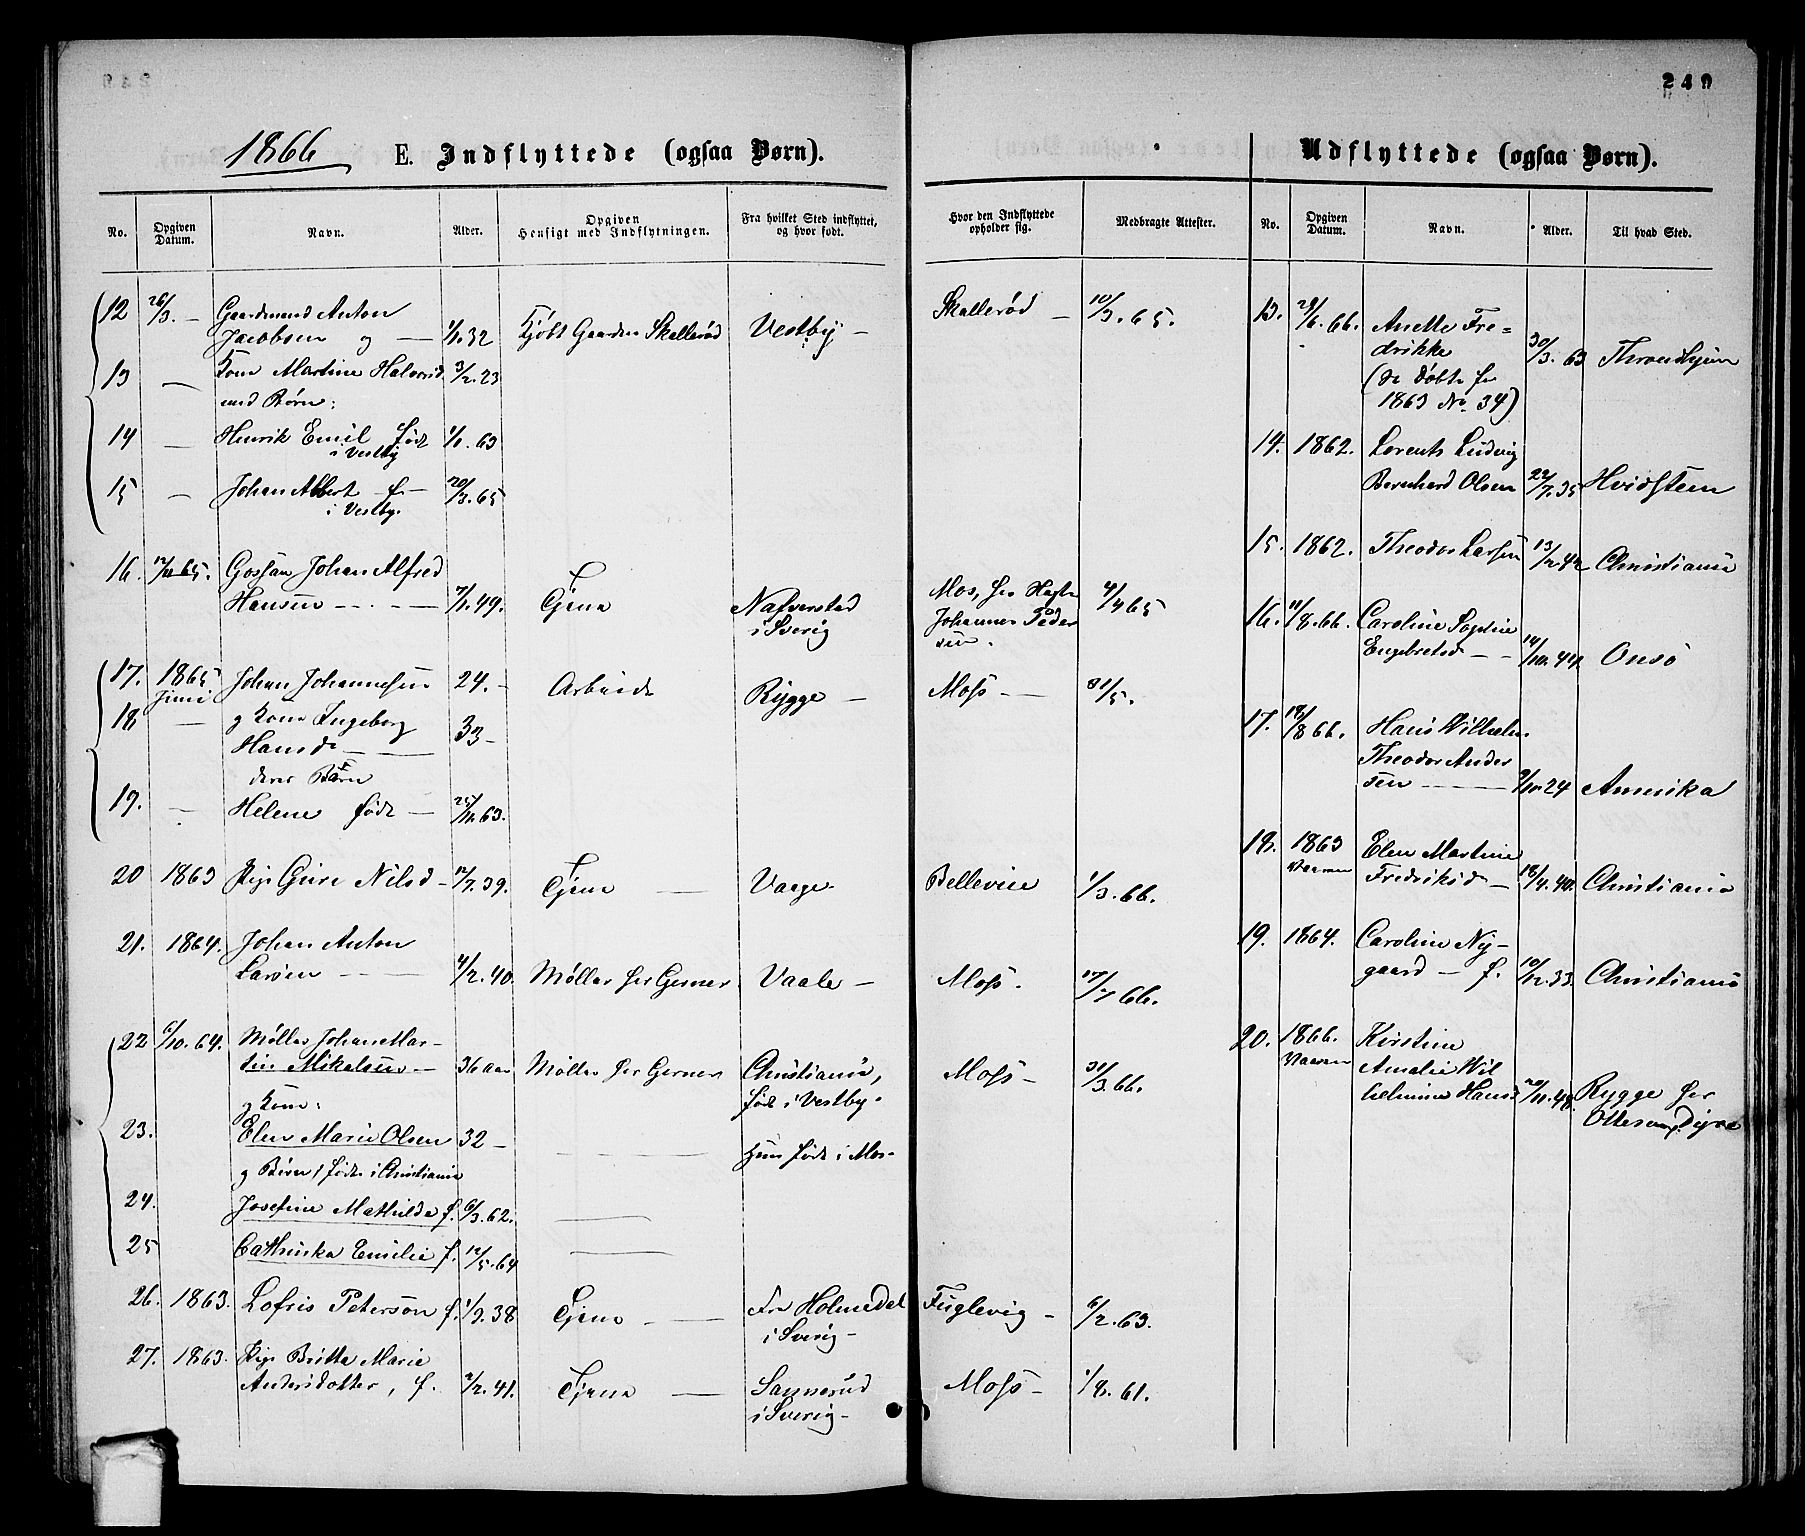 249
1866 E. Indflyttede (ogsaa Børn).
No. Opgiven Datum. Navn. Alder. Opgiven Hensigt med Indflytningen. Fra hvilket Sted indflyttet, og hvor født. Hvor den Indflyttede opholder sig. Medbragte Attester.
12 26/3. — Gaardmand Anton
Jacobsen og — 1/1.32 Kjøbt Gaarden Skallerød Vestby — Skallerød — 10/3.65.
13 — Kone Martine Halvorsd 3/2.23
med Børn:
14 — Henrik Emil født 1/1.63
i Vestby
15 — Johan Albert f — 20/3.65
i Vestby.
16. 65. Johan Alfred
Hansen — 49. Tjene Nafverstad i Sverig Mos, hos Johannes Pedersen. 4/4 65
17. 1865 Juni Johan Johannesen 24. — Arbeide Rygge — Moss — 31/5.
18 — og Kone Ingeborg
Hansd — 33 —
deres Børn
19. — Helene født — 25/11.63.
20 1863 Pige Guri Nilsd — 17/7.39. Tjene — Vaage — Bellevue 1/3.66.
21. 1864. Johan Anton
Larsen — 4/2.40. Møller hos Gerner Vaale — Moss. 17/7 66.
22 6/10.64. Møller Johan Mar-
tin Mikalsen — 36 aar Møller hos Gerner Christiania, født i Vestby. Moss — 31/3.66.
og Kone:
23. Elen Marie Olsen 32 — — Hun født i Mos —
og Børn, født i Christiania
24. Josefine Mathilde f. 6/3.62. —
25 Cathinka Emilie f. 12/5.64 —
26. 1863. Peterson f. 1/3.38 Tjene — Fra Holmedal i Sverig — Fuglevig — 6/2.63.
27. 1863. Pige Britta Marie
Andersdotter, f. 2/2.41. Tjene — Sannerud i Sverig — Moss — 1/8.61.
Udflyttede (ogsaa Børn).
No. Opgiven Datum. Navn. Alder. Til hvad Sted.
13. 66. Anette Fre-
drikke 30/3.63 Throndhjem
(se døbte for
1863 No. 34)
14. 1862. Lorents Ludvig
Bernhard Olsen 22/7.35 Hvidsteen
15. 1862. Theodor Larsen 13/2.42 Christiania
16. 11/8.66. Caroline Sophie
Engebretsd — 14/10.44 Onsø
17. 18/8 66. Hans Wilhelm
Theodor Ander
sen — 24 Amerika
18. 1863 Vaaren Elen Martine
Fredriksd — 18/4.40. Christiania
19. 1864. Caroline Ny-
gaard — f. 10/12.33. Christiania
20. 1866. Vaaren Kirstine
Amalie Wil
helmine Hansd 20/11.48. Rygge hos
Dyre